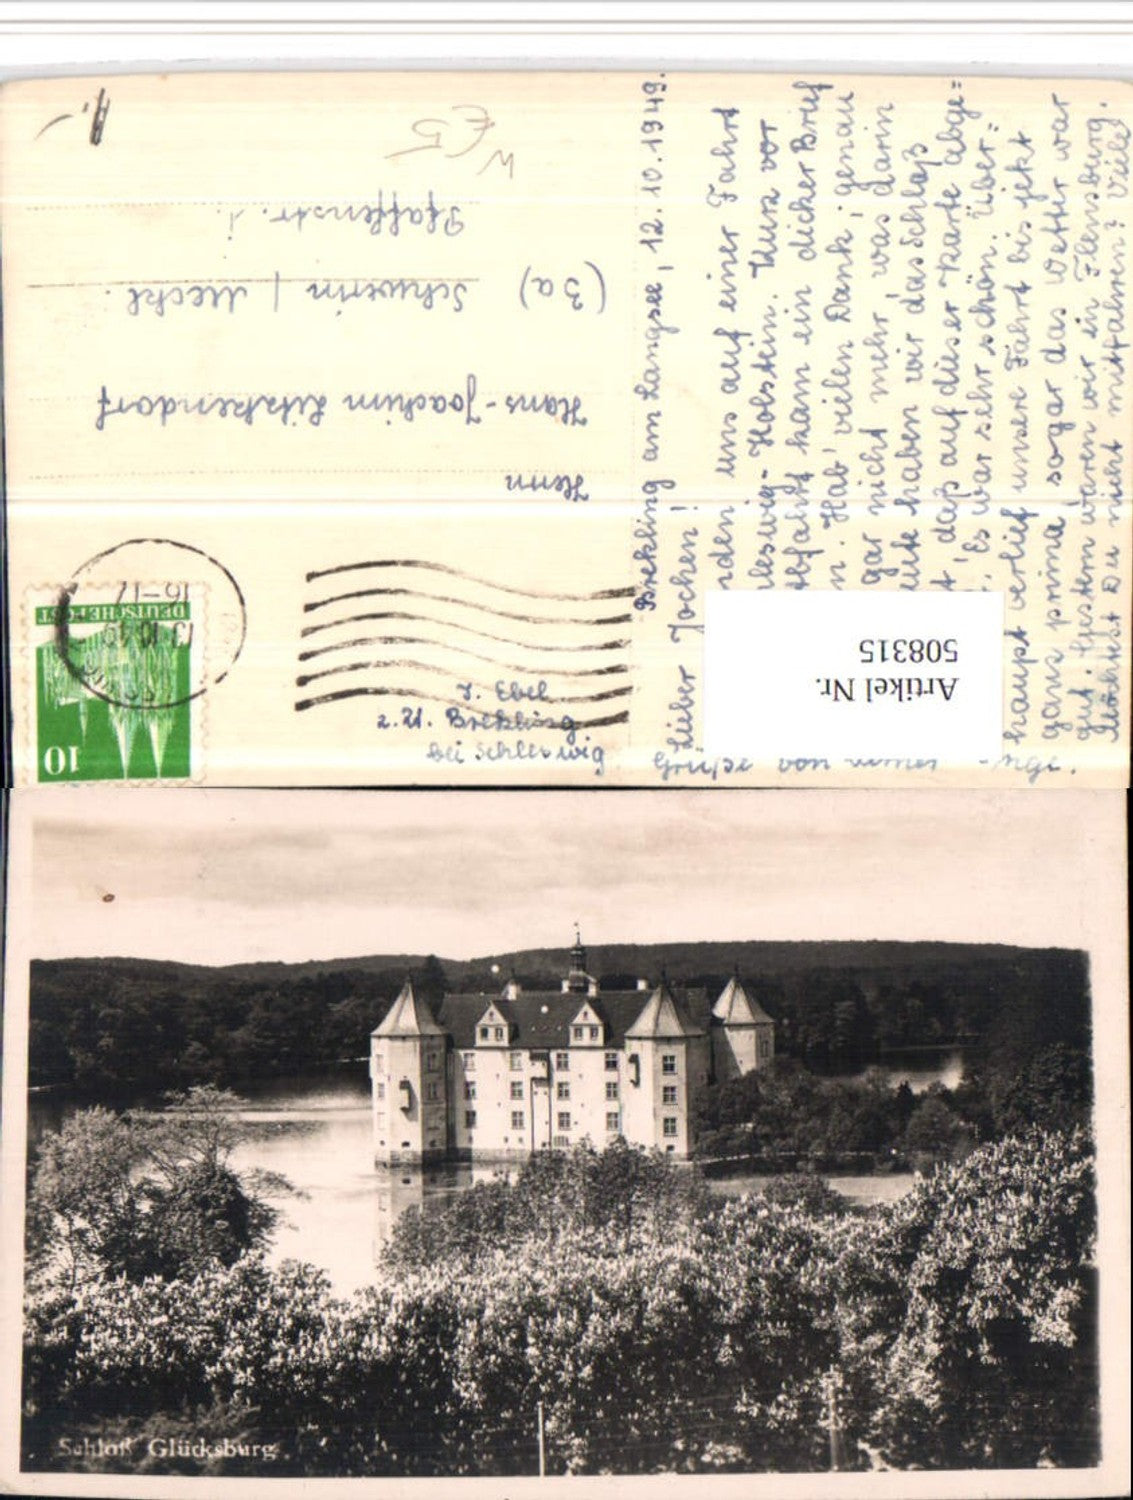 Brekling am Langsee, 12.10.1949.
Lieber Jochen!
rden uns auf einer Fahrt
leswig-Holstein. Kurz vor
bfahrt kam ein dicker Brief
n. Hab' vielen Dank, genau
gar nicht mehr, was darin
ute haben wir das Schloß
t, daß auf dieser Karte abge=
. Es war sehr schön. Über=
haupt verlief unsere Fahrt bis jetzt
ganz prima sogar das Wetter war
gut. Gestern waren wir in Flensburg.
Möchtest Du nicht mitfahren? Viele
Herrn
Hans-Joachim Litzkendorf
(3a) Schwerin / Meckl.
Pfaffenstr. 1.
W €5
1,-
10
DEUTSCHE POST
13.10.49
16-17
J. Ebel
z. Zt. Brekling
bei Schleswig
Artikel Nr.
508315
Schloß Glücksburg